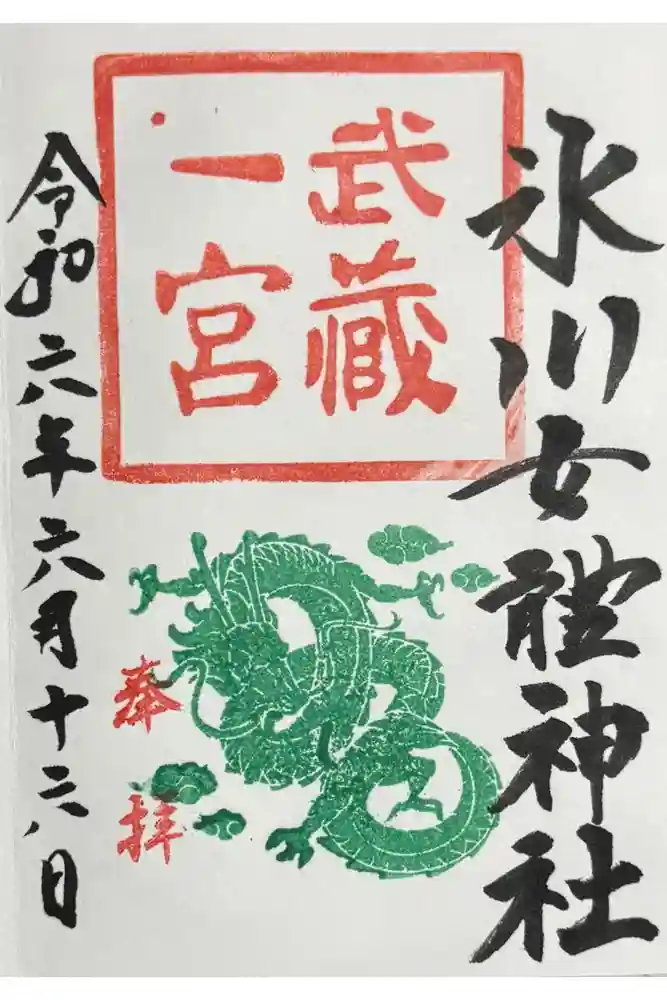 氷川女體神社
武藏
一宮
奉拝
令和六年六月十六日